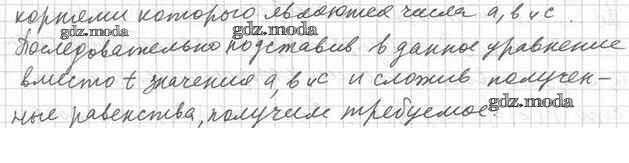 корнями которого являются числа a, b и c.
gdz.moda
Последовательно подставив в данное уравнение
gdz.moda
вместо t значения a, b и c и сложив получен-
gdz.moda
ные равенства, получим требуемое.
gdz.moda